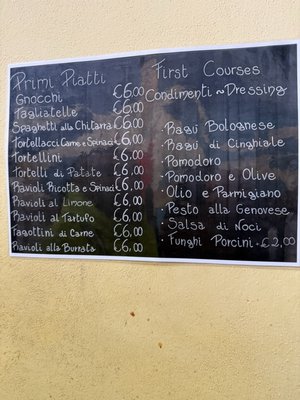 Primi Piatti
Gnocchi €6,00
Tagliatelle €6,00
Spaghetti alla Chitarra €6,00
Tortellacci Carne e Spinaci €6,00
Tortellini €6,00
Tortelli di Patate €6,00
Ravioli Ricotta e Spinaci €6,00
Ravioli al Limone €6,00
Ravioli al Tartufo €6,00
Fagottini di Carne €6,00
Ravioli alla Burrata €6,00
First Courses
Condimenti ~ Dressing
· Ragù Bolognese
· Ragù di Cinghiale
· Pomodoro
· Pomodoro e Olive
· Olio e Parmigiano
· Pesto alla Genovese
Salsa di Noci
· Funghi Porcini - €2,00